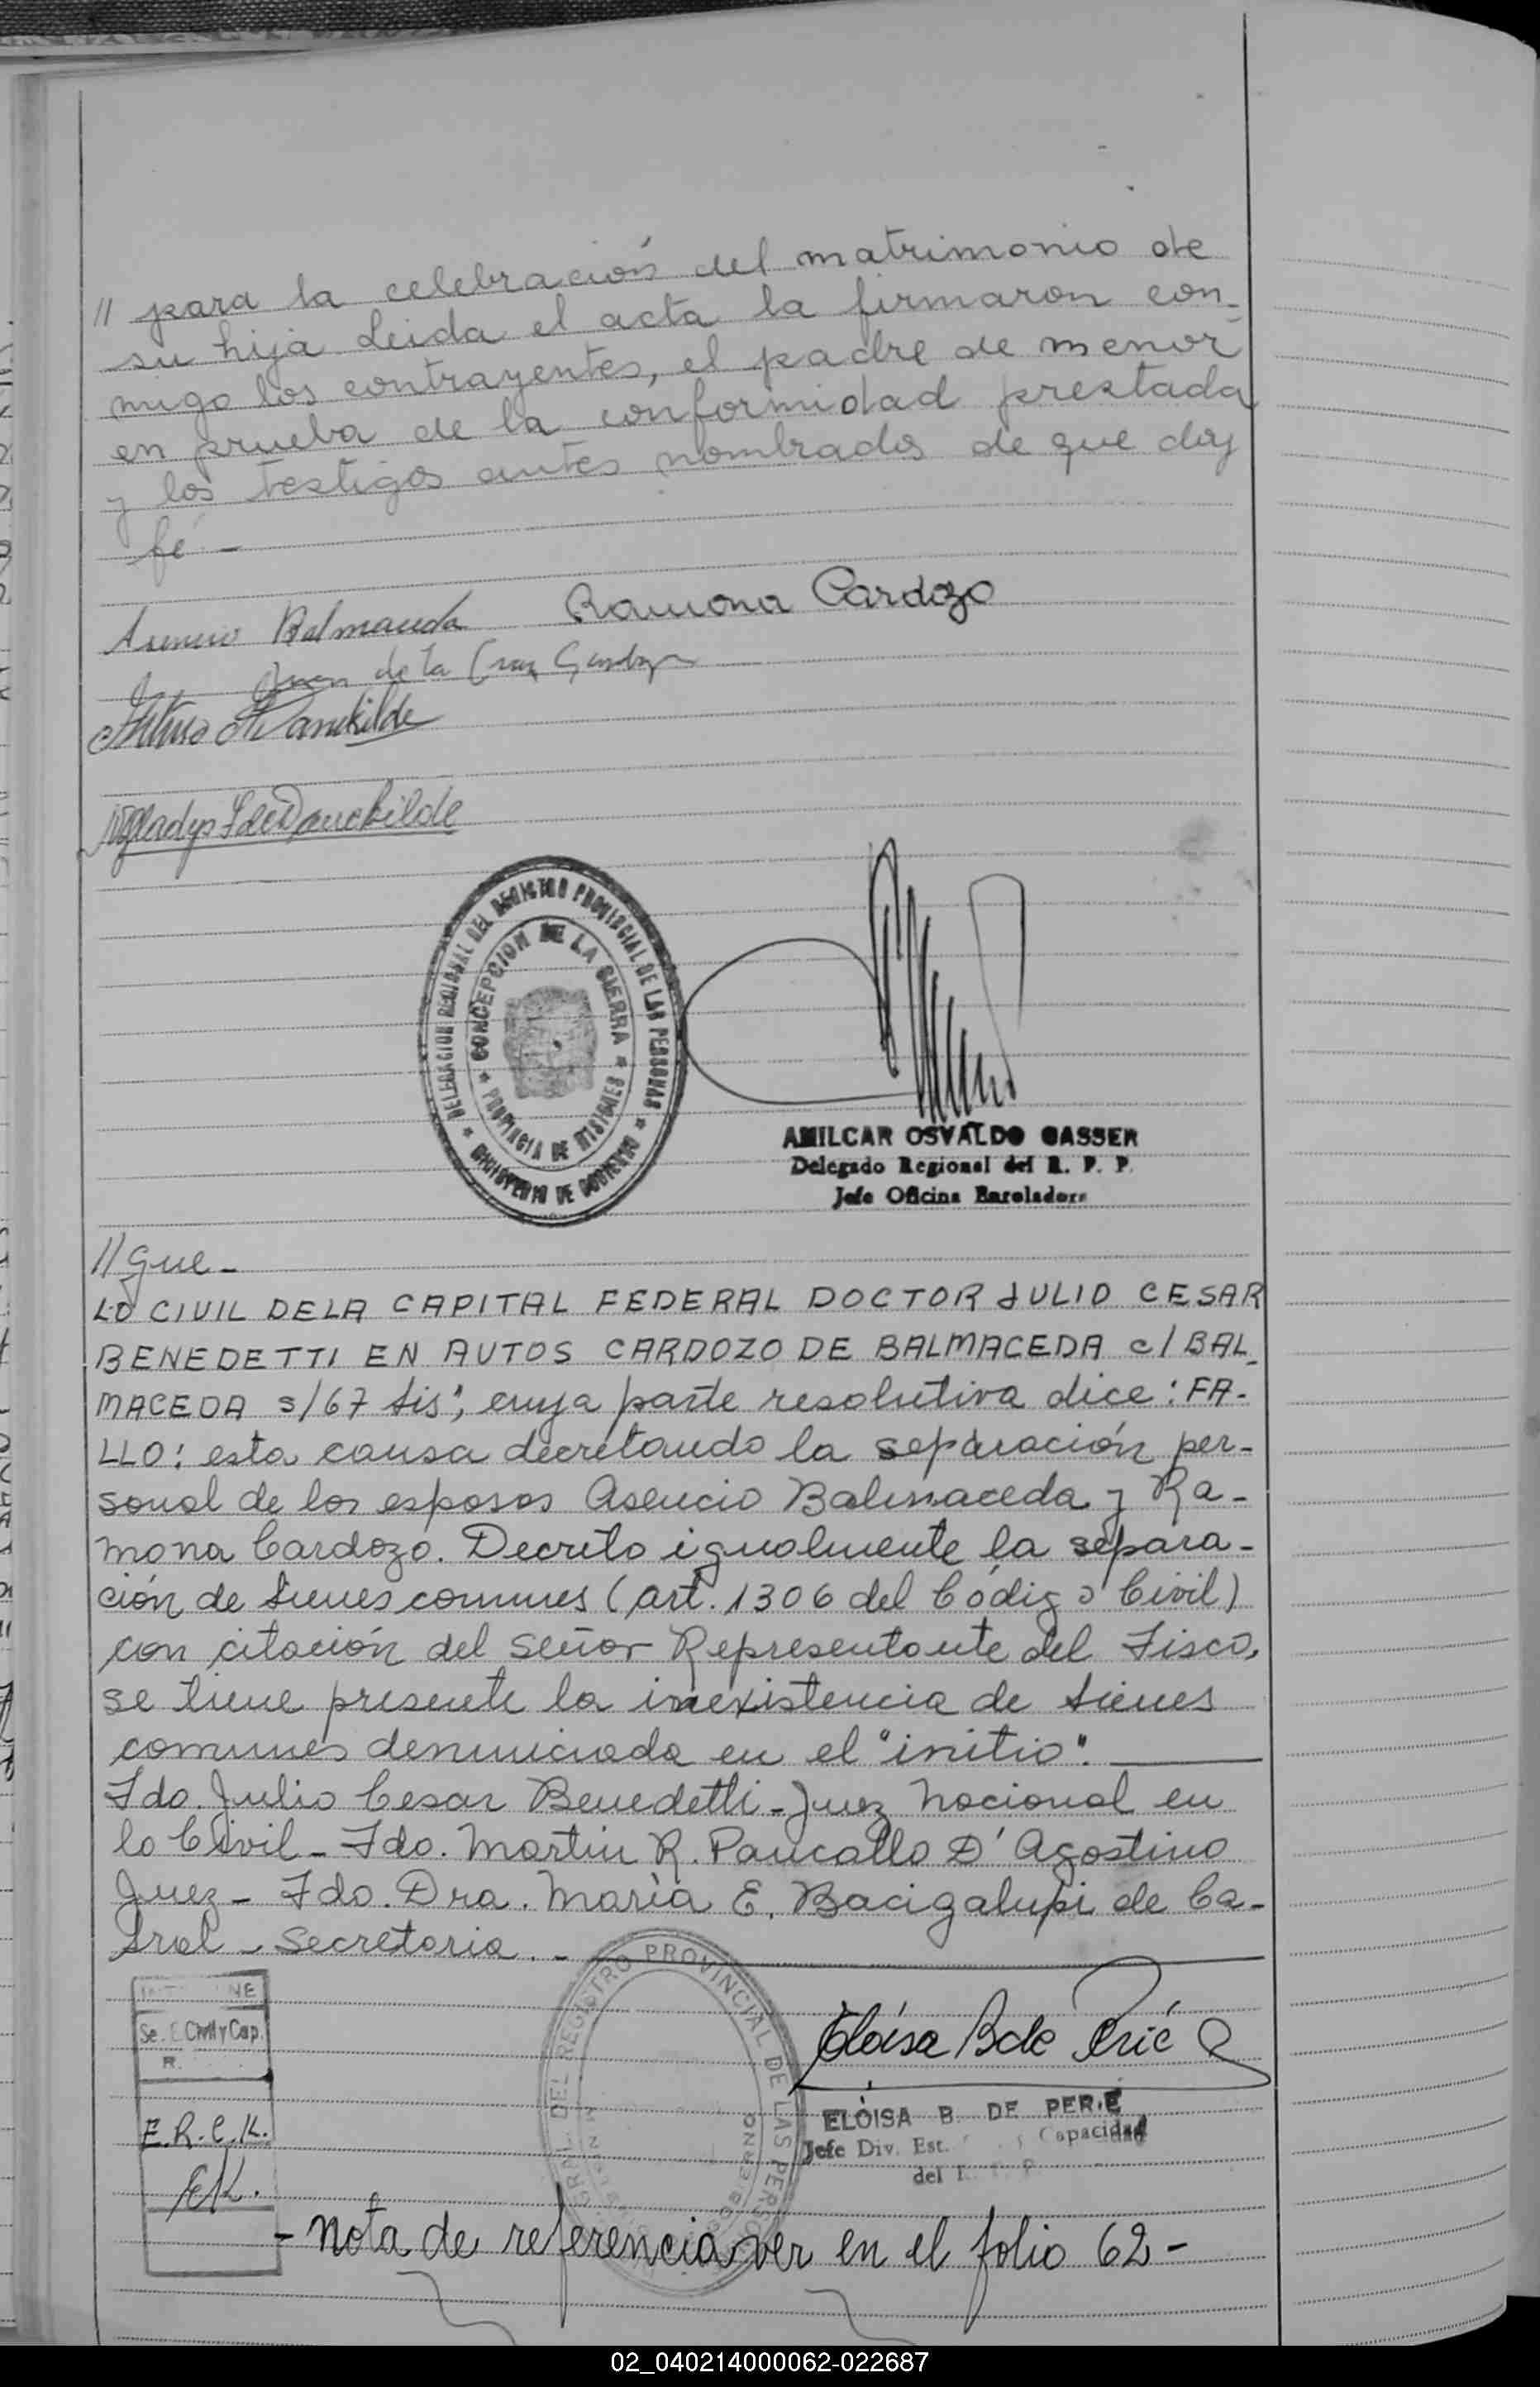 // para la celebración del matrimonio de
su hija. Leida el acta la firmaron con-
migo los contrayentes, el padre de menor
en prueba de la conformidad prestada
y los testigos antes nombrados de que doy
fé.-
Balmaceda Ramona Cardozo
Juan de la Cruz
DELEGACION REGIONAL DEL REGISTRO PROVINCIAL DE LAS PERSONAS
* MINISTERIO DE GOBIERNO *
* CONCEPCION DE LA SIERRA *
PROVINCIA DE MISIONES
AMILCAR OSVALDO GASSER
Delegado Regional del R. P. P.
Jefe Oficina
//que-
LO CIVIL DE LA CAPITAL FEDERAL DOCTOR JULIO CESAR
BENEDETTI EN AUTOS CARDOZO DE BALMACEDA c/ BAL-
MACEDA s/67 bis", cuya parte resolutiva dice: FA-
LLO: esta causa decretando la separación per-
sonal de los esposos Asencio Balmaceda y Ra-
mona Cardozo. Decreto igualmente la separa-
ción de bienes comunes (art. 1306 del Código Civil)
con citación del señor Representante del Fisco,
se tiene presente la inexistencia de bienes
comunes denunciada en el "initio".
Fdo. Julio Cesar Benedetti - Juez Nacional en
lo Civil - Fdo. Martin R. D'Agostino
Juez - Fdo. Dra. María E. Bacigalupi de Ca-
bral - Secretaria.-
REGISTRO PROVINCIAL DE LAS PERSONAS
Civil y Cap.
E.R.C.K.
EK.
Eloísa B de Perié
ELOISA B. DE PERIE
Jefe Div. Est. Capacidad
del
- nota de referencia ver en el folio 62 -
02_040214000062-022687